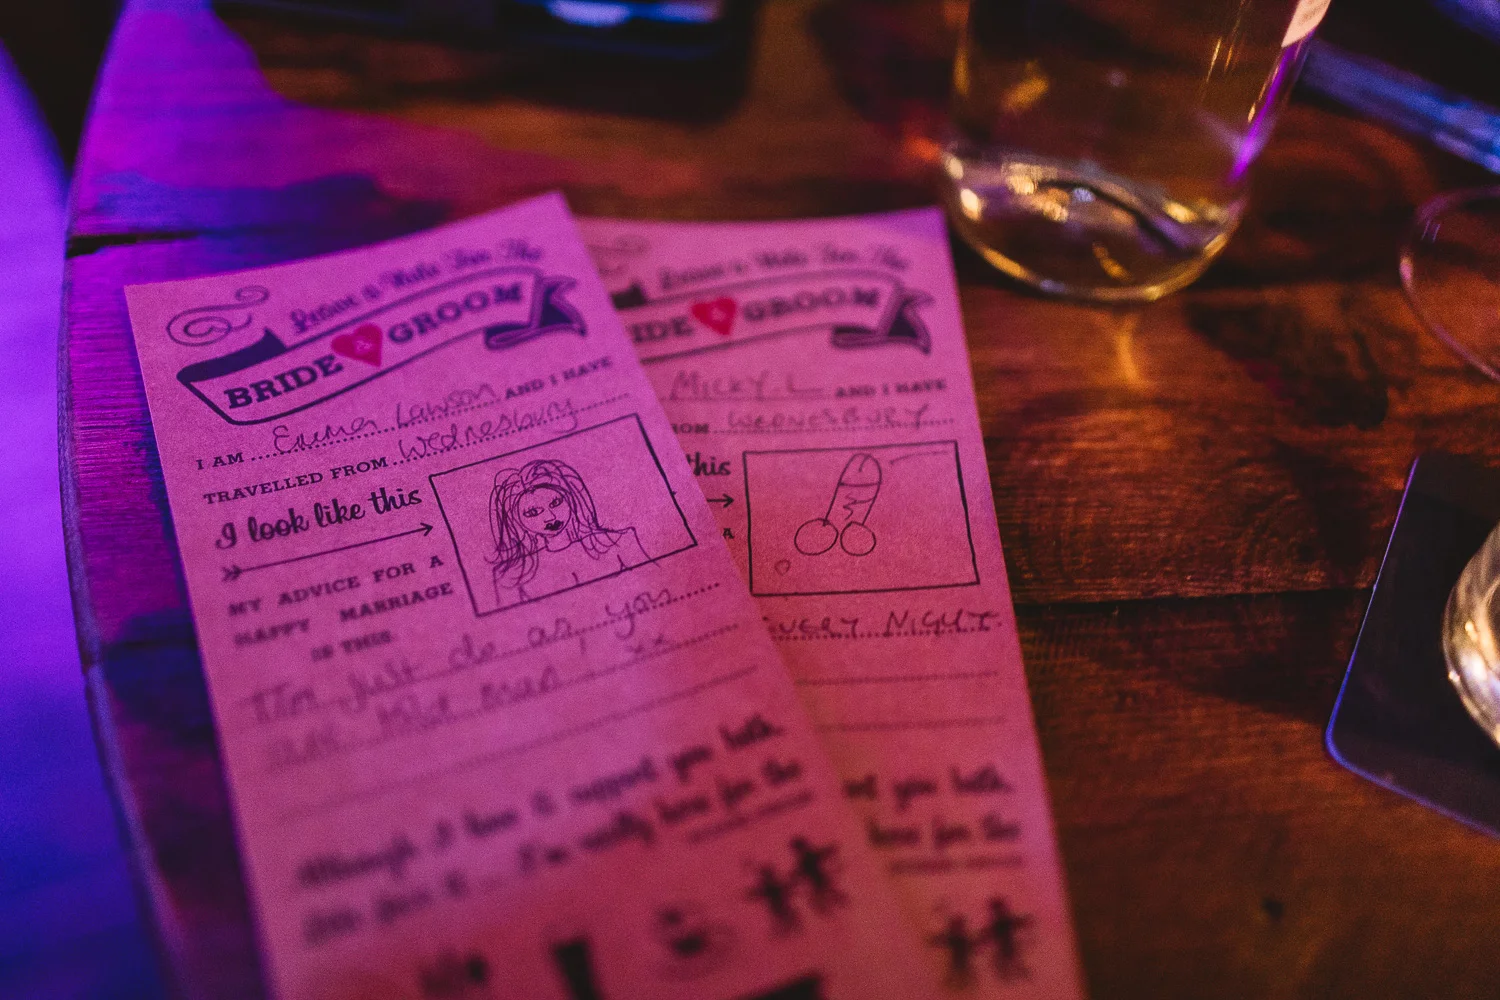 Leave a Note For The
BRIDE & GROOM
I AM Emma Lawson AND I HAVE
TRAVELLED FROM Wednesbury
I look like this
MY ADVICE FOR A
HAPPY MARRIAGE
IS THIS
Tim just do as you
are told man, xx
Although I have to support you both,
I'm really here for the
Leave a Note For The
IDE & GROOM
MICKY. L AND I HAVE
OM WEDNESBURY
this
A
EVERY NIGHT.
you both,
here for the